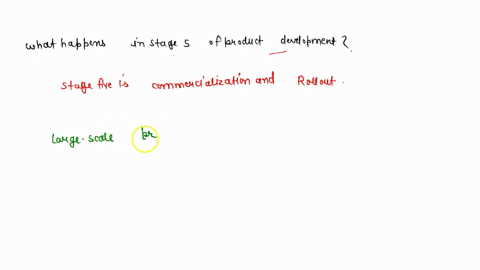 what happens in stage 5 of product development?
stage five is commercialization and Rollout.
Large-scale pr